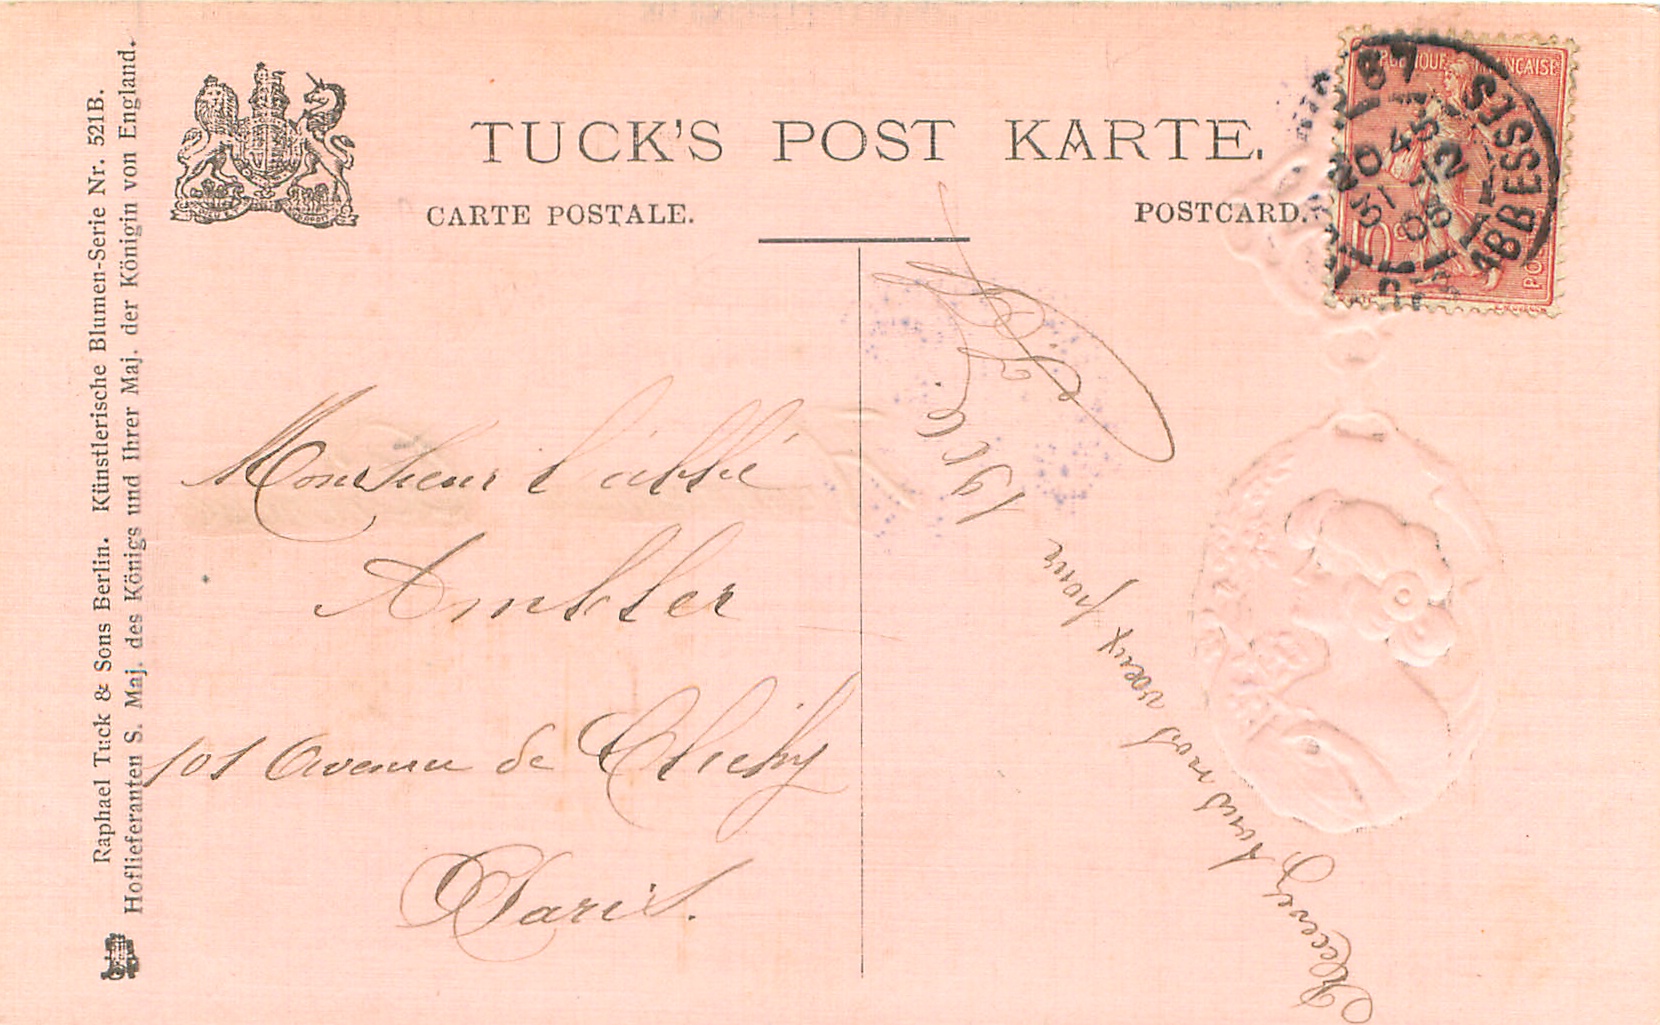 TUCK'S POST KARTE.
CARTE POSTALE.
POSTCARD.
Raphael Tuck & Sons Berlin. Künstlerische Blumen-Serie Nr. 521B.
Hoflieferanten S. Maj. des Königs und Ihrer Maj. der Königin von England.
Monsieur l'abbé
Ambler
101 Avenue de Clichy
Paris.
Recevez tous nos vœux pour
1906.
RÉPUBLIQUE FRANÇAISE
ABBESSES
20 45
31 12